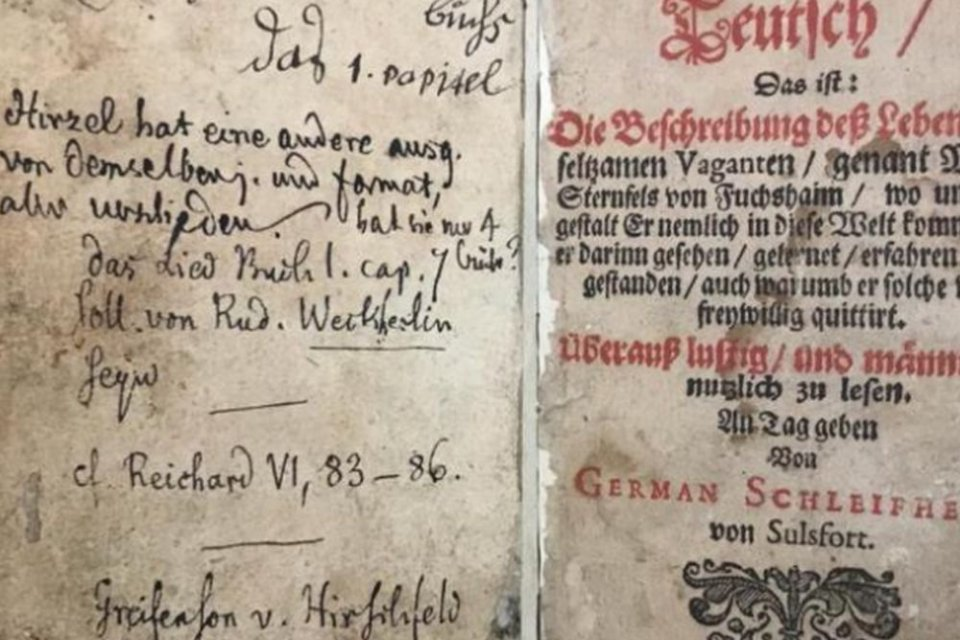 buchs
Das 1. capitel
Hirzel hat eine andere ausg.
von demselben j. und format,
aber verschieden. hat sie nur 4
das Lied Buch 1. cap. 7 büche?
soll von Rud. Weckherlin
seyn
cf. Reichard VI, 83–86.
Greifenson v. Hirschfeld
Teutsch /
Das ist:
Die Beschreibung deß Leben
seltzamen Vaganten / genant M
Sternfels von Fuchshaim / wo un
gestalt Er nemlich in diese Welt komm
er darinn gesehen / gelernet / erfahren
gestanden / auch warumb er solche
freywillig quittirt.
Überauß lustig / und männ
nutzlich zu lesen.
An Tag geben
Von
GERMAN SCHLEIFHE
von Sulsfort.